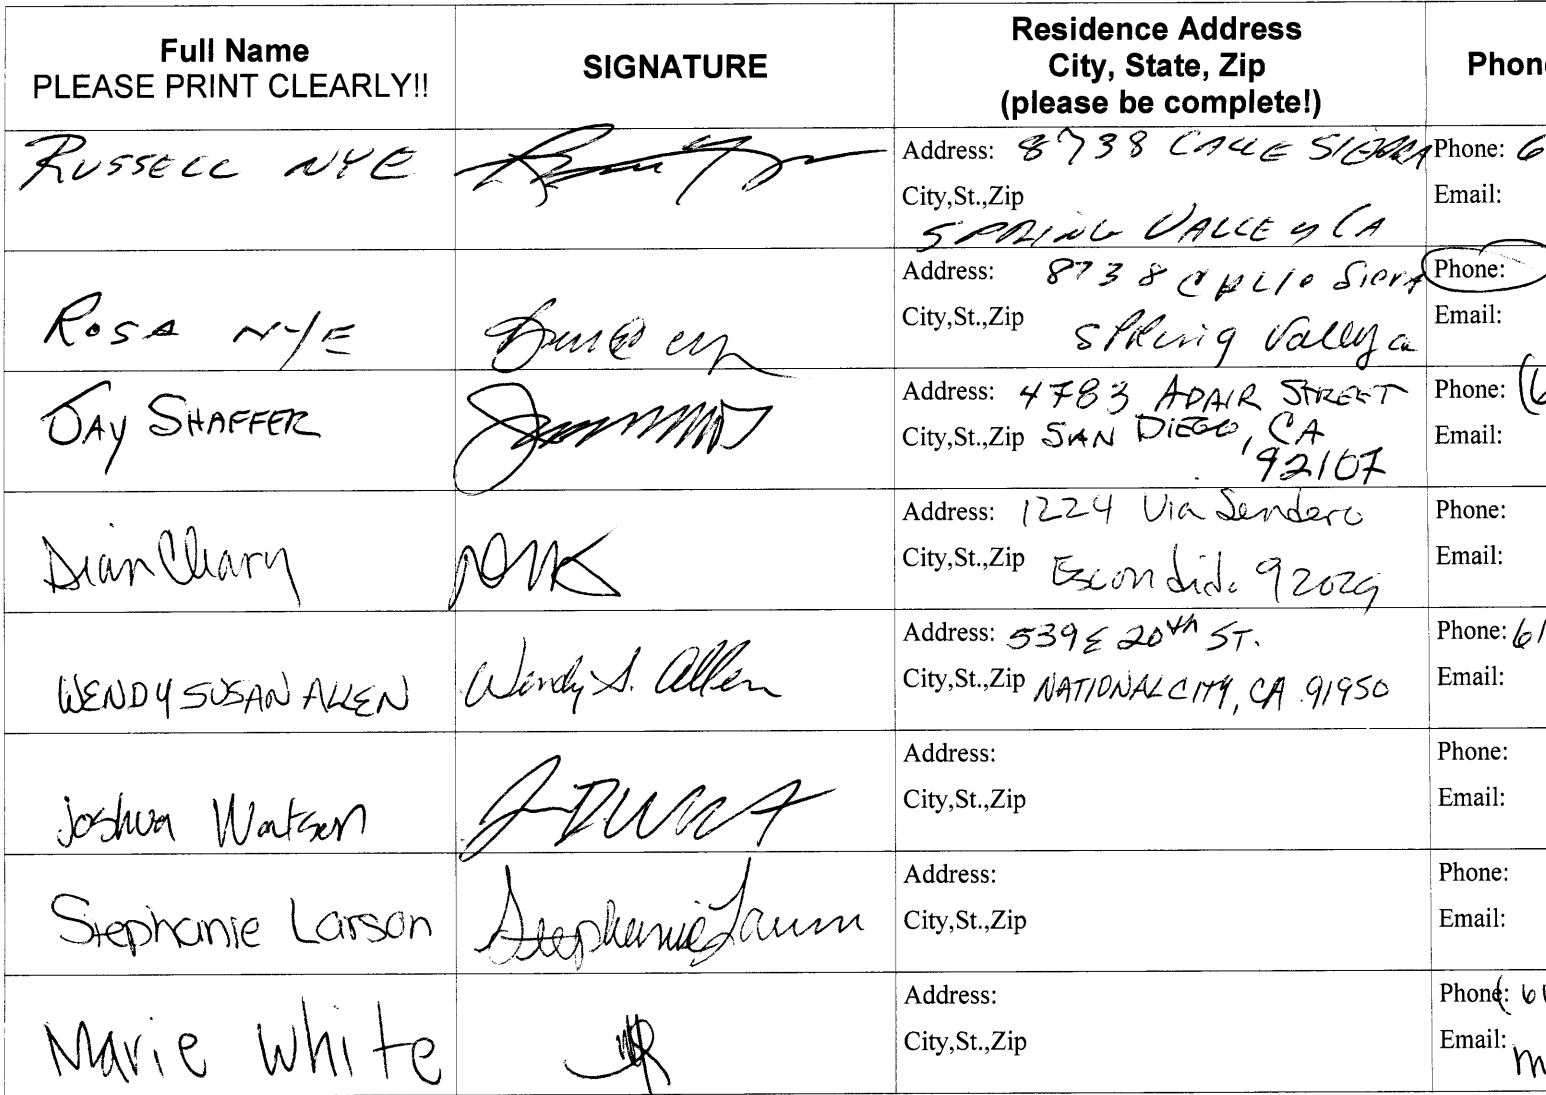 Full Name
PLEASE PRINT CLEARLY!!
SIGNATURE
Residence Address
City, State, Zip
(please be complete!)
Phon
RUSSELL NYE
Address: 8738 CALLE SIERRA
City,St.,Zip
SPRING VALLEY CA
Phone: 6
Email:
ROSA NYE
Address: 8738 Calle Siera
City,St.,Zip
Spring Valley ca
Phone:
Email:
JAY SHAFFER
Address: 4783 ADAIR STREET
City,St.,Zip SAN DIEGO, CA
92107
Phone: (6
Email:
Dian Cleary
Address: 1224 Via Sendero
City,St.,Zip Escondido 92029
Phone:
Email:
WENDY SUSAN ALLEN
Wendy S. Allen
Address: 539 E 20th ST.
City,St.,Zip NATIONAL CITY, CA 91950
Phone: 61
Email:
Joshua Watson
Address:
City,St.,Zip
Phone:
Email:
Stephanie Larson
Stephanie Larson
Address:
City,St.,Zip
Phone:
Email:
Marie White
Address:
City,St.,Zip
Phone: (61
Email:
m